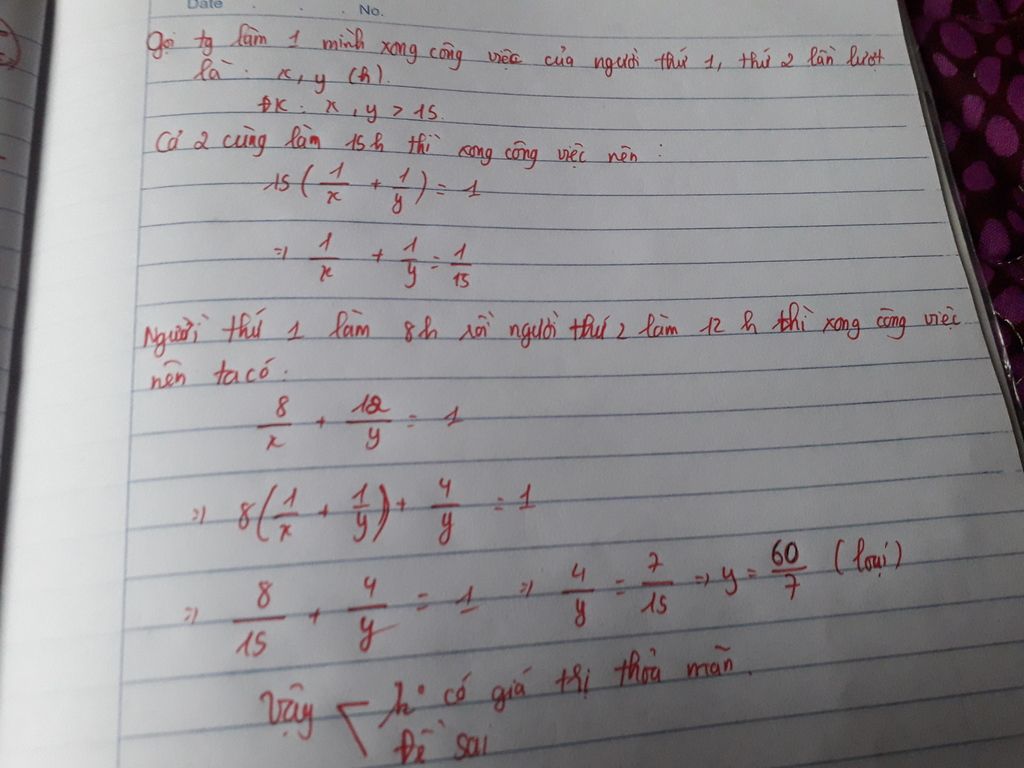 Date . . . No.
Gọi tg làm 1 mình xong công việc của người thứ 1, thứ 2 lần lượt
là : x, y (h).
ĐK : x, y > 15.
Cả 2 cùng làm 15h thì xong công việc nên :
15(1/x + 1/y) = 1
=> 1/x + 1/y = 1/15
Người thứ 1 làm 8h rồi người thứ 2 làm 12 h thì xong công việc
nên ta có :
8/x + 12/y = 1
=> 8(1/x + 1/y) + 4/y = 1
=> 8/15 + 4/y = 1 => 4/y = 7/15 => y = 60/7 (loại)
Vậy < k° có giá trị thỏa mãn.
Đề sai